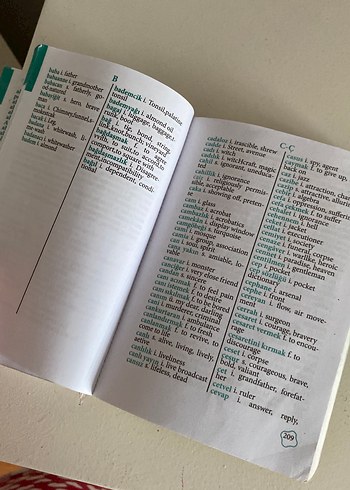 baba i. father
babaanne i. grandmother
babacan s. fatherly, go-
od-natured
babayiğit s. hero, brave
man
baca i. Chimney,funnel,s-
mokestak
bacak i. Leg
badana i. whitewash, li-
me-wash
badanacı i. whitewasher
badem i. almond
B
bademcik i. Tonsil,palatine
tonsil
bademyağı i. almond oil
bagaj i. luggage, baggage,t-
runk, boot
bağ i. tie, bond, string,
link,knot,bunch; vineyard
bağdaşmak f. to agree
with, to suit,to accord,to
comport,to square with
bağdaşmazlık i. Disagree-
ment,incompatibility
bağıl i. dependent, condi-
tional
cadaloz i. irascible, shrew
cadde i. Street, avenue
cadı i. witch
cadılık i. witchCraft, magic
cahil i. ignorant, uneduca-
ted
cahillik i. ignorence
caiz s. religiously permis-
sible, acceptable
caka i. showing of, preten-
se
cam i. glass
cambaz i. acrobat
cambazlık i. acrobatics
camekân i. display window
camgöbeği s. turquoise
cami i. mosque
camia i. group, association
can i. soul, spirit
cana yakın s. amiable, lo-
vely
canavar i. monster
canciğer i. very close friend
candan s. sincere
canı acımak f. to feel pain
canı istemek f. to desire
canı sıkılmak f. to be bored
canım ü. my dear, darling
cani i. murderer, cruel
cankurtaran i. ambulance
canlandırma i. enlivening
canlanmak f. to revive, to
come to life
canlı s. alive, living, lively,
active
canlılık i. liveliness
canlı yayın i. live broadcast
cansız s. lifeless, dead
C-Ç
casus i. spy, agent
caymak f. to give up,
back out
caz i. jazz
cazibe i. attraction, charm
cazip s. attractive, alluring
cebir i. algebra
cefa i. oppression, suffering
cehalet i. ignorance
cehennem i. hell
ceket i. jacket
cellat i. executioner
cemiyet i. society
cenaze i. funeral, corpse
cengâver s. warlike, heroic
cennet i. paradise, heaven
centilmen i. gentleman
cep i. pocket
cep sözlüğü i. pocket
dictionary
cephane i. arsenal
cephe i. front
cereyan i. flow, air move-
ment
cerrah i. surgeon
cesaret i. courage, bravery
cesaret vermek f. to encou-
rage
cesaretini kırmak f. to
discourage
ceset i. corpse
cesur s. courageous, brave,
bold, valiant
cet i. grandfather, forefat-
her
cetvel i. ruler
cevap i. answer, reply,
209